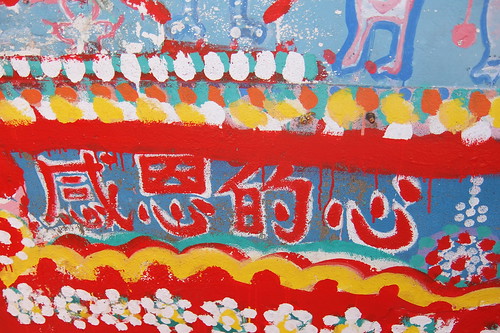 感恩的心